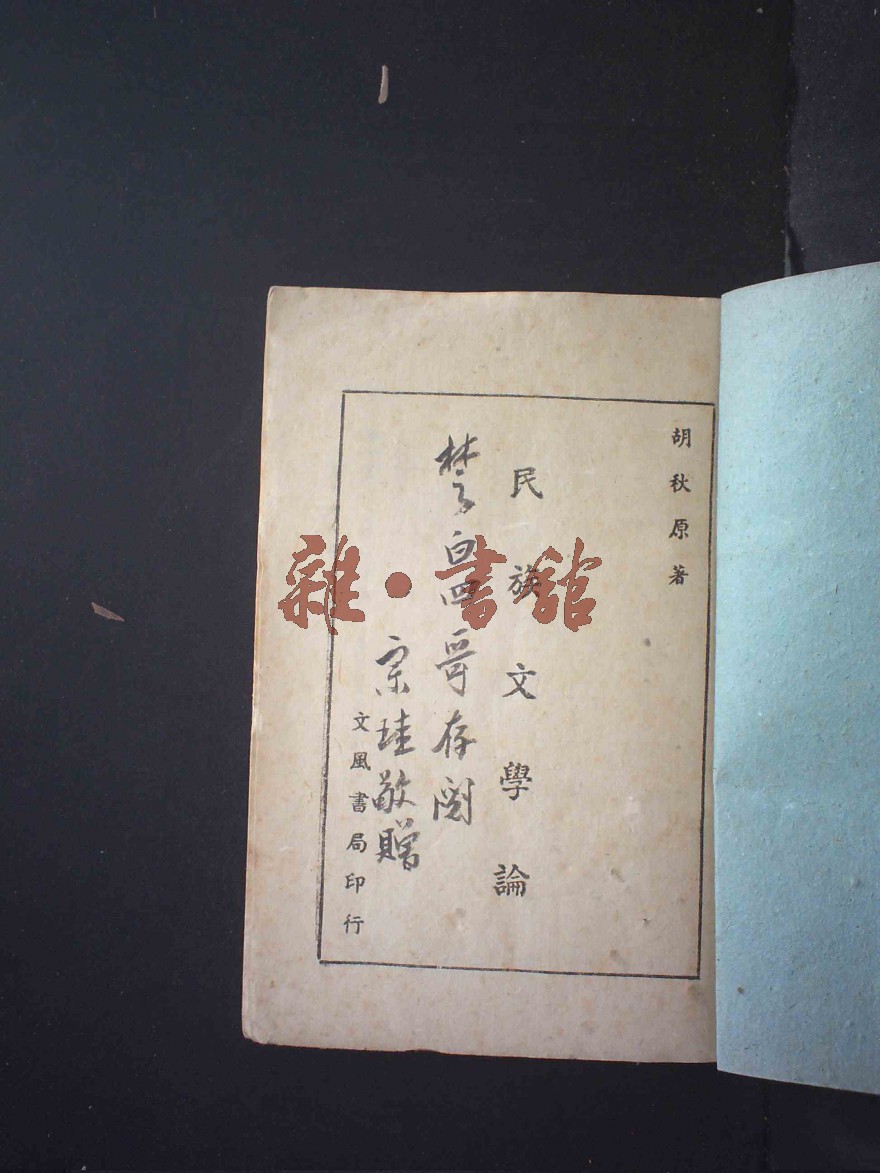 胡秋原著
民族文學論
楚白四哥存閱
宗珪敬贈
文風書局印行
雜·書館